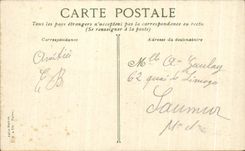 CARTE POSTALE
Tous les pays étrangers n'acceptent pas la correspondance au recto
(Se renseigner à la poste)
Correspondance
Adresse du destinataire
Amitiés
Mlle
62 quai de Limoges
Saumur